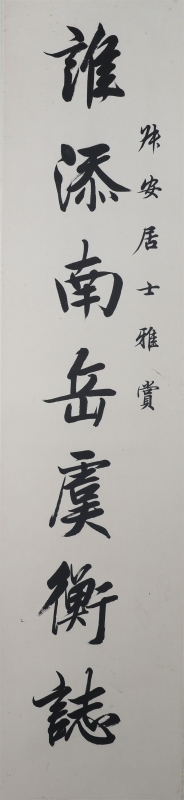 㪺安居士雅賞
誰添南岳虞衡誌